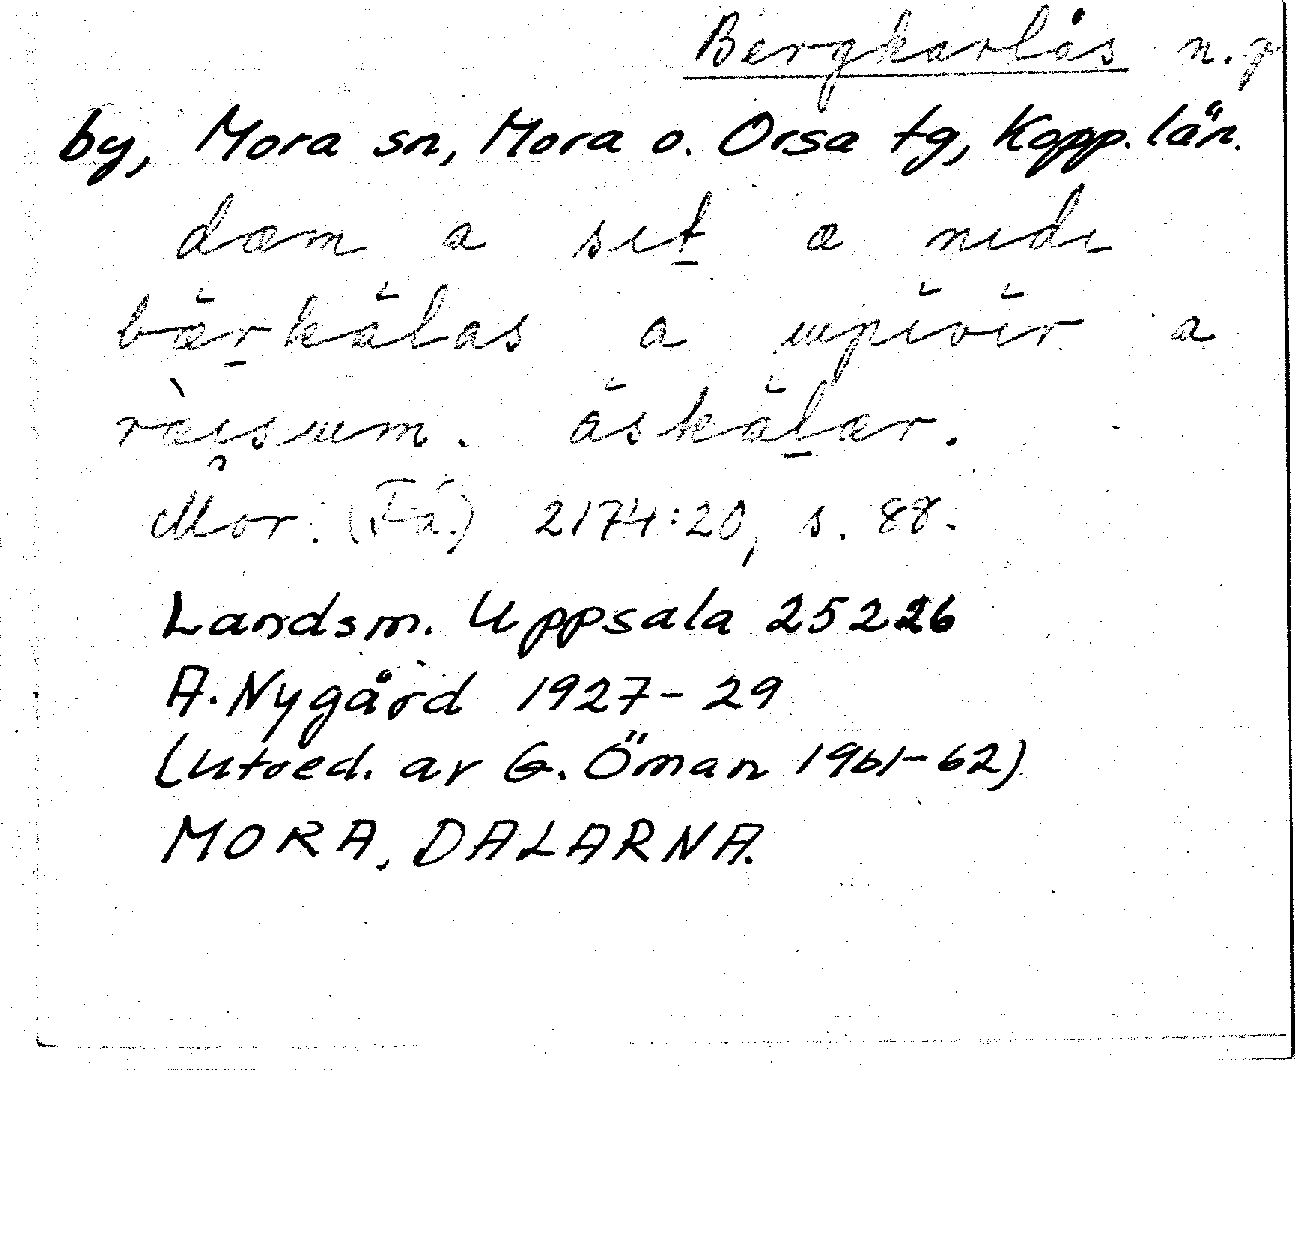 Bergkarlås n.p
by, Mora sn, Mora o. Orsa tg, Kopp. län.
dæm a sɩt æ nɩdɩ
bærkälas a ɯpivir a
ràɩsɯm. åskälær.
Mor. (Få.) 2174:20, s. 88.
Landsm. Uppsala 25226
A. Nygård 1927-29
(Utred. av G. Öman 1961-62)
MORA, DALARNA.